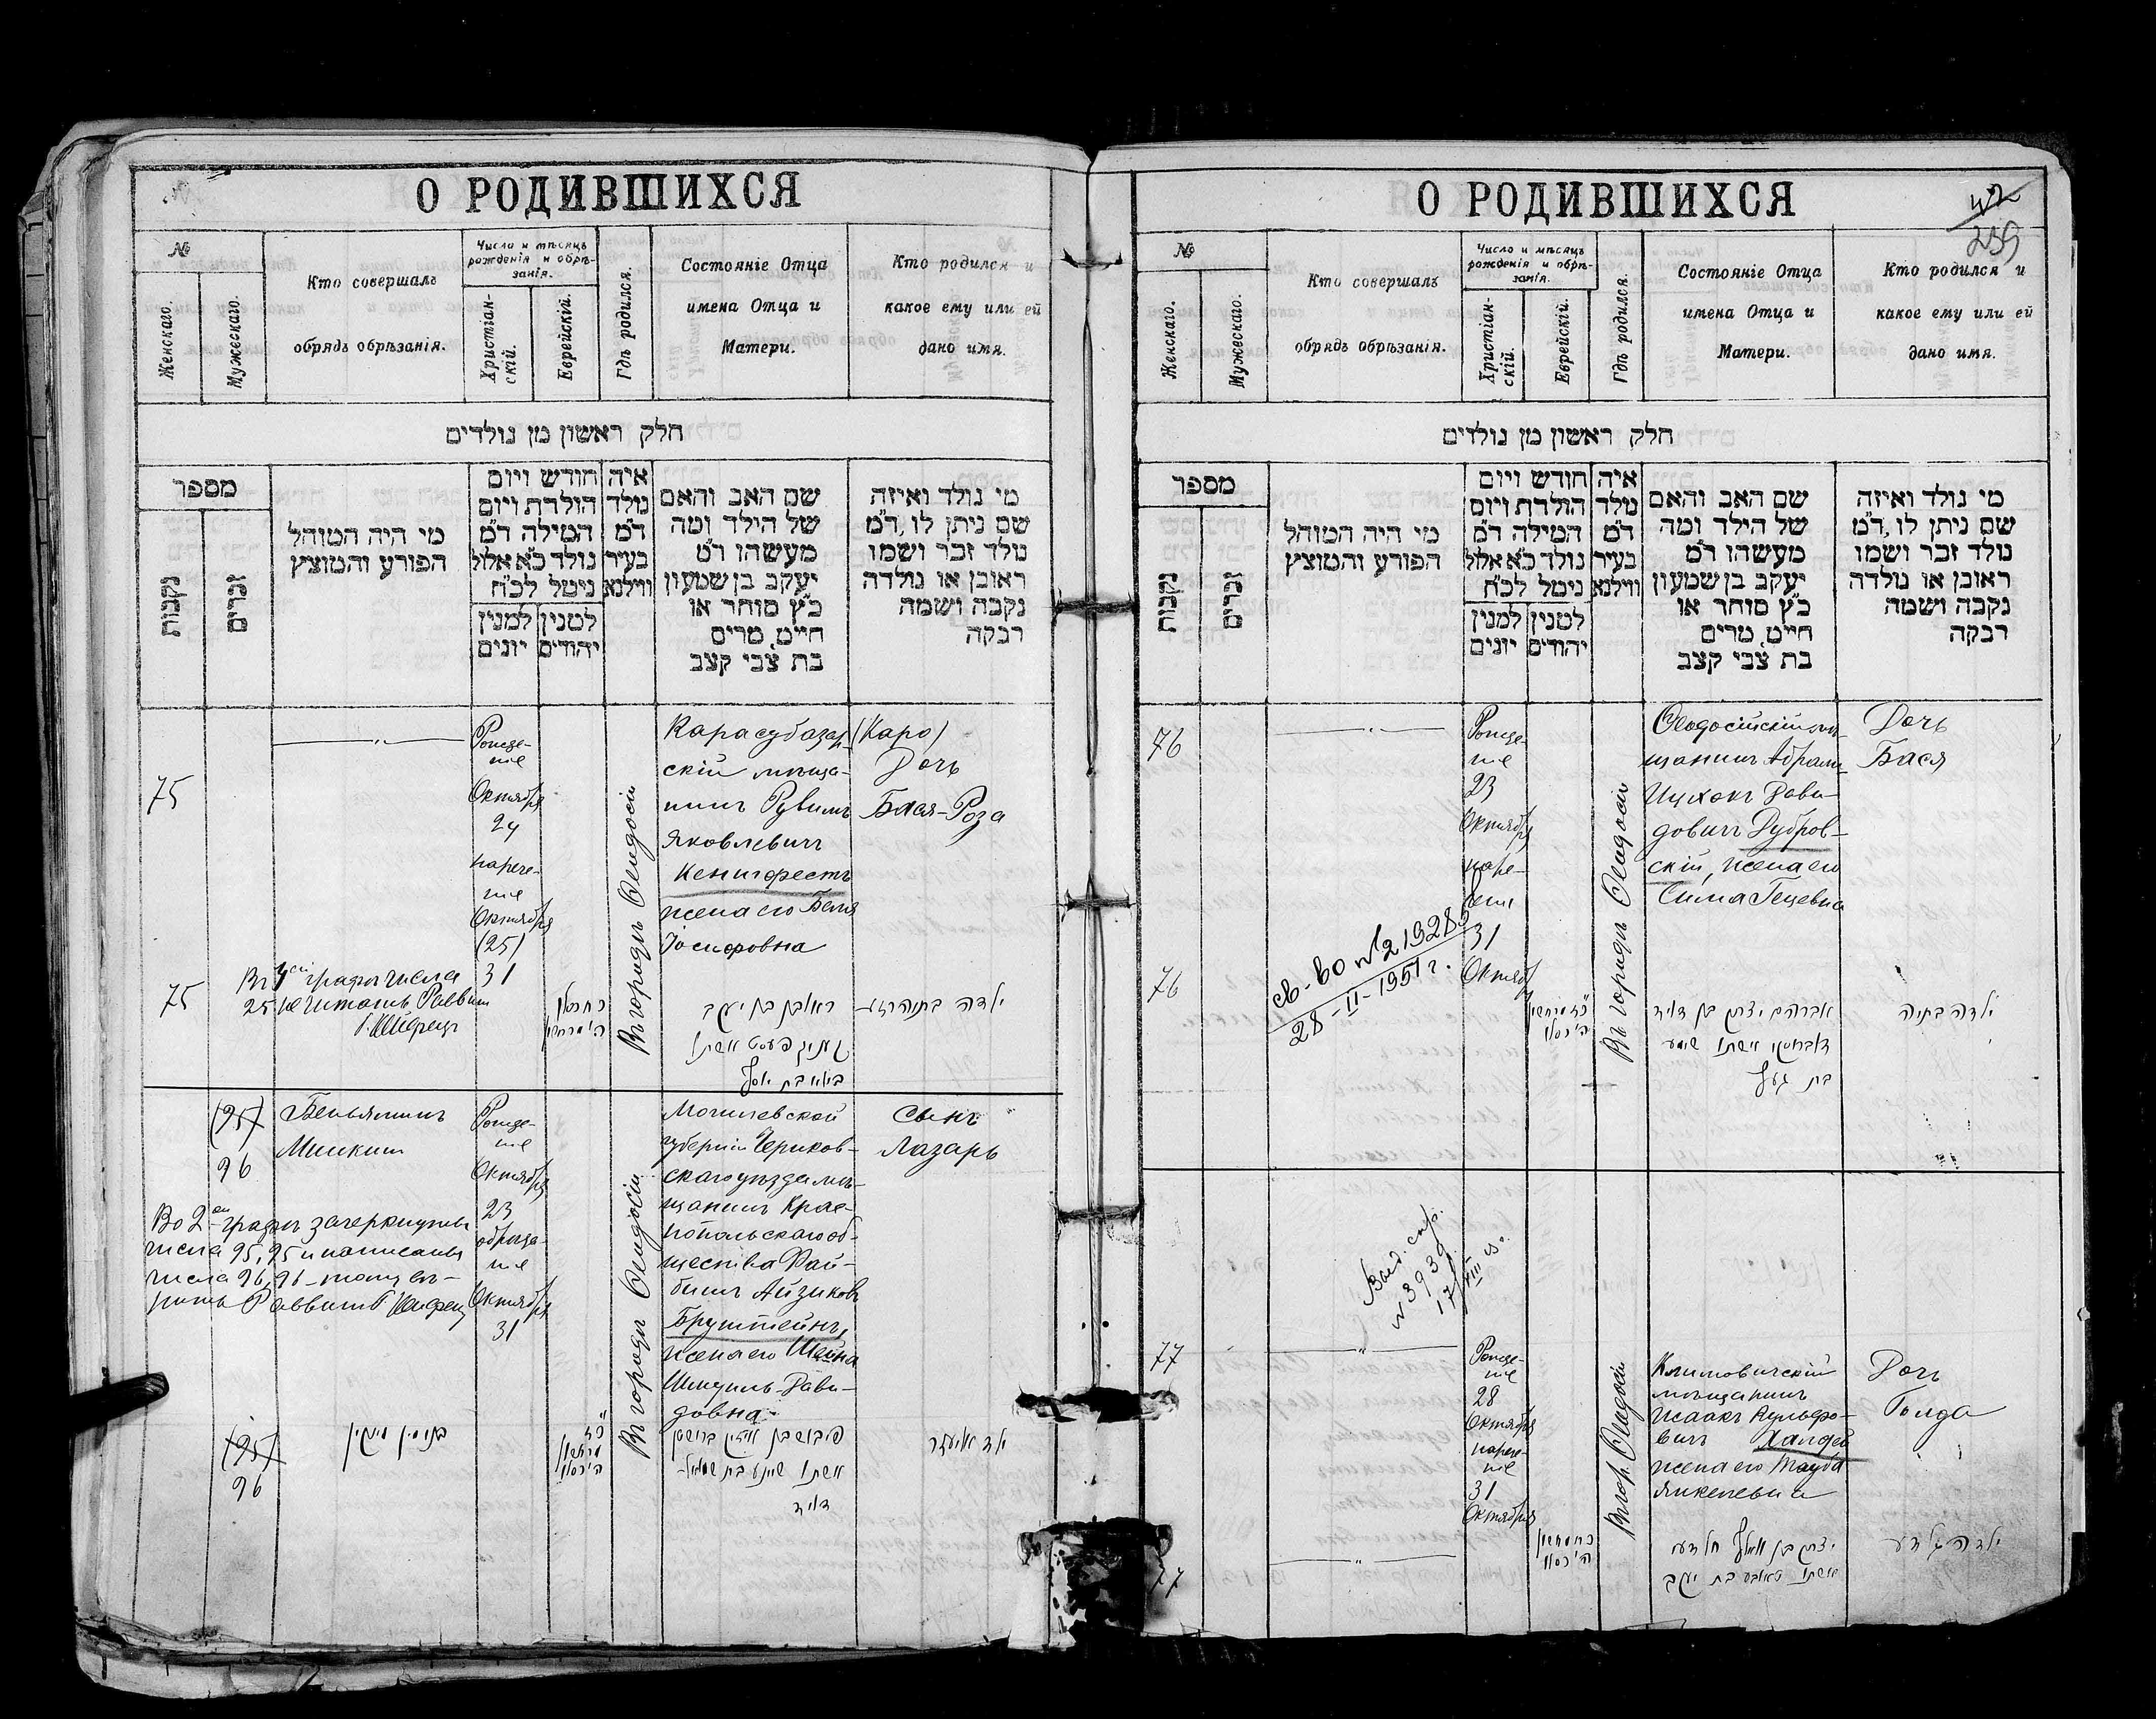 О РОДИВШИХСЯ
№
Женскаго.
Мужескаго.
Кто совершалъ
обрядъ обрѣзанія.
Число и мѣсяцъ
рожденія и обрѣ-
занія.
Христіан-
скій.
Еврейскій.
Гдѣ родился.
Состояніе Отца
имена Отца и
Матери.
Кто родился и
какое ему или ей
дано имя.
חלק ראשון מן נולדים
מספר
נקבות
זכרים
מי היה המוהל
הפורע והמוצץ
חודש ויום
הולדת ויום
המילה ד״מ
נולד כ״א אלול
ניטל לכ״ח
למנין
יונים
למנין
יהודים
איה
נולד
ד״מ
בעיר
ווילנא
שם האב והאם
של הילד ומה
מעשהו ד״מ
יעקב בן שמעון
כ״ץ סוחר או
חייט, מרים
בת צבי קצב
מי נולד ואיזה
שם ניתן לו, ד״מ
נולד זכר ושמו
ראובן או נולדה
נקבה ושמה
רבקה
75
Рожде-
ніе
Октября
24
нарече-
ніе
Октября
(25)
31
Въ городѣ Ѳеодосіи
Карасубазар-
скій мѣща-
нинъ Рувимъ
Яковлевичъ
Кенигфестъ
жена его Бейла
Іосифовна
(Каро)
Дочь
Бася-Роза
75
ראובן בן יעקב
קעניגפעסט אשתו
ביילא בת יוסף
(95)
96
Беньяминъ
Минкинъ
Рожде-
ніе
Октября
23
обрѣза-
ніе
Октября
31
Въ городѣ Ѳеодосіи
Могилевской
губерніи Чериков-
скаго уѣзда мѣ-
щанинъ Крас-
нопольскаго об-
щества Фай-
бишъ Айзиковъ
Бруштейнъ,
жена его Шейна
Шмуилъ-Дави-
довна
Сынъ
Лазарь
Во 2ой графѣ зачеркнуты
числа 95, 95 и написаны
числа 96, 96
(95)
96
בנימין מינקין
פייבוש בן אייזיק ברושטין
אשתו שיינע בת שמואל-
דוד
ילד אליעזר
О РОДИВШИХСЯ
42
239
№
Женскаго.
Мужескаго.
Кто совершалъ
обрядъ обрѣзанія.
Число и мѣсяцъ
рожденія и обрѣ-
занія.
Христіан-
скій.
Еврейскій.
Гдѣ родился.
Состояніе Отца
имена Отца и
Матери.
Кто родился и
какое ему или ей
дано имя.
חלק ראשון מן נולדים
מספר
נקבות
זכרים
מי היה המוהל
הפורע והמוצץ
חודש ויום
הולדת ויום
המילה ד״מ
נולד כ״א אלול
ניטל לכ״ח
למנין
יונים
למנין
יהודים
איה
נולד
ד״מ
בעיר
ווילנא
שם האב והאם
של הילד ומה
מעשהו ד״מ
יעקב בן שמעון
כ״ץ סוחר או
חייט, מרים
בת צבי קצב
מי נולד ואיזה
שם ניתן לו, ד״מ
נולד זכר ושמו
ראובן או נולדה
נקבה ושמה
רבקה
76
Рожде-
ніе
23
Октября
наре-
31
Октября
Въ городѣ Ѳеодосіи
Ѳеодосійскій мѣ-
щанинъ Абрамъ-
Ицхокъ Дави-
довичъ Дубров-
скій, жена его
Сима Гецевна
Дочь
Бася
св-во №219283
28-II-1951 г.
76
אברהם יצחק בן דוד
דוברווסקי אשתו סימע
בת געץ
ילדה בתיה
№ 3939
77
Рожде-
ніе
28
Октября
нарече-
ніе
31
Октября
Въ гор. Ѳеодосіи
Климовичскій
мѣщанинъ
Исаакъ Вульфо-
вичъ Халдей
жена его Тауба
Янкелевна
Дочь
Голда
77
יצחק בן וואלף חלדעי
אשתו טאובע בת יעקב
ילדה גאלדע